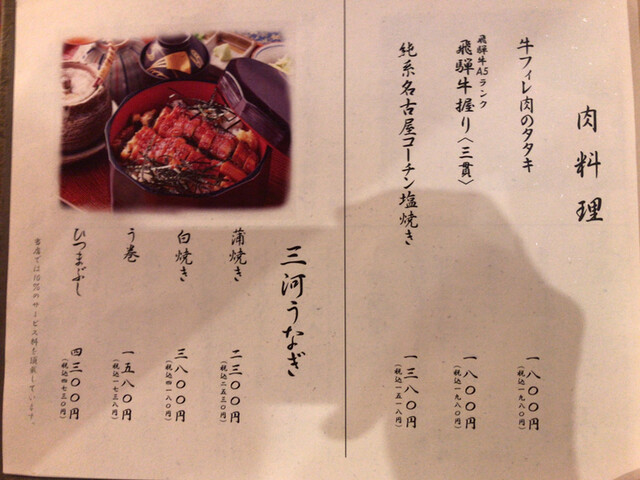 肉料理
牛フィレ肉のタタキ
一八〇〇円
(税込一九八〇円)
飛騨牛A5ランク
飛騨牛握り〈三貫〉
一八〇〇円
(税込一九八〇円)
純系名古屋コーチン塩焼き
一三八〇円
(税込一五一八円)
三河うなぎ
蒲焼き
二三〇〇円
(税込二五三〇円)
白焼き
三八〇〇円
(税込四一八〇円)
う巻
一五八〇円
(税込一七三八円)
ひつまぶし
四三〇〇円
(税込四七三〇円)
当店では10%のサービス料を頂戴しています。